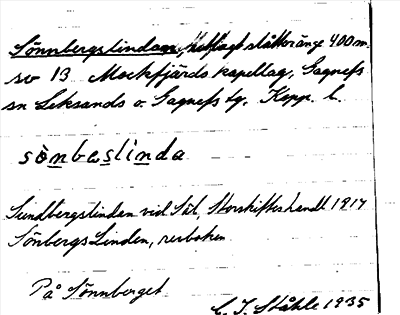 Sönnbergslindan, utslagt slåtteräng 400 m.
sv 13 Mockfjärds kapellag, Gagnefs
sn Leksands o. Gagnefs tg. Kopp. l.
sönbeslinda
Sundbergslinden vid Säl, Storskifteshandl 1917
Sönbergs Linden, renboken
På Sönnberget
C. I. Ståhle 1935